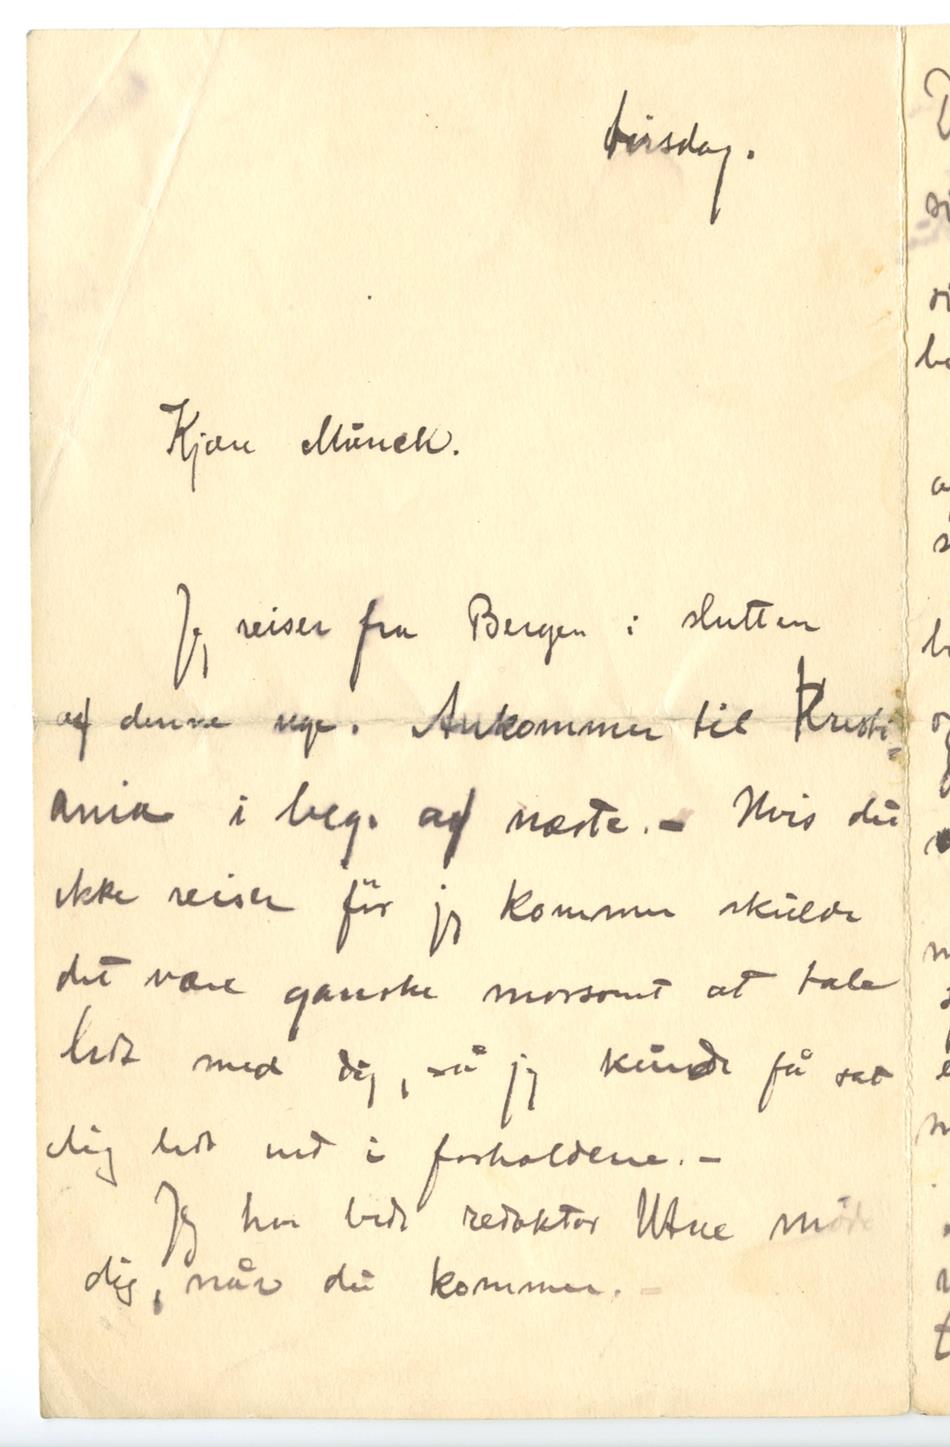 tirsdag.
Kjære Munch.
Jeg reiser fra Bergen i slutten
af denne uge. Ankommer til Kristi-
ania i beg. af næste. – Hvis du
ikke reiser för jeg kommer skulde
det være ganske morsomt at tale
lidt med dig, så jeg kunde få sat
dig lidt ind i forholdene. –
Jeg har bedt redaktør Utne møde
dig, når du kommer. –